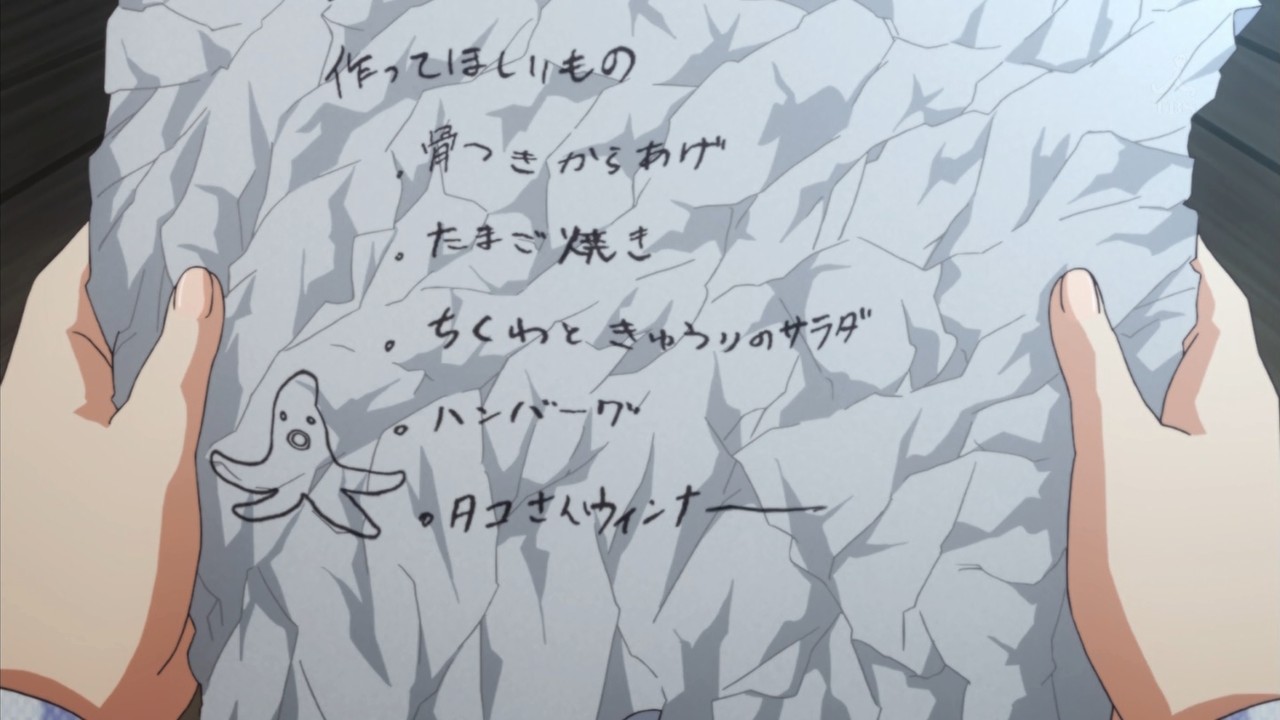 作ってほしいもの
・骨つきからあげ
。たまご焼き
。ちくわときゅうりのサラダ
。ハンバーグ
。タコさんウィンナー